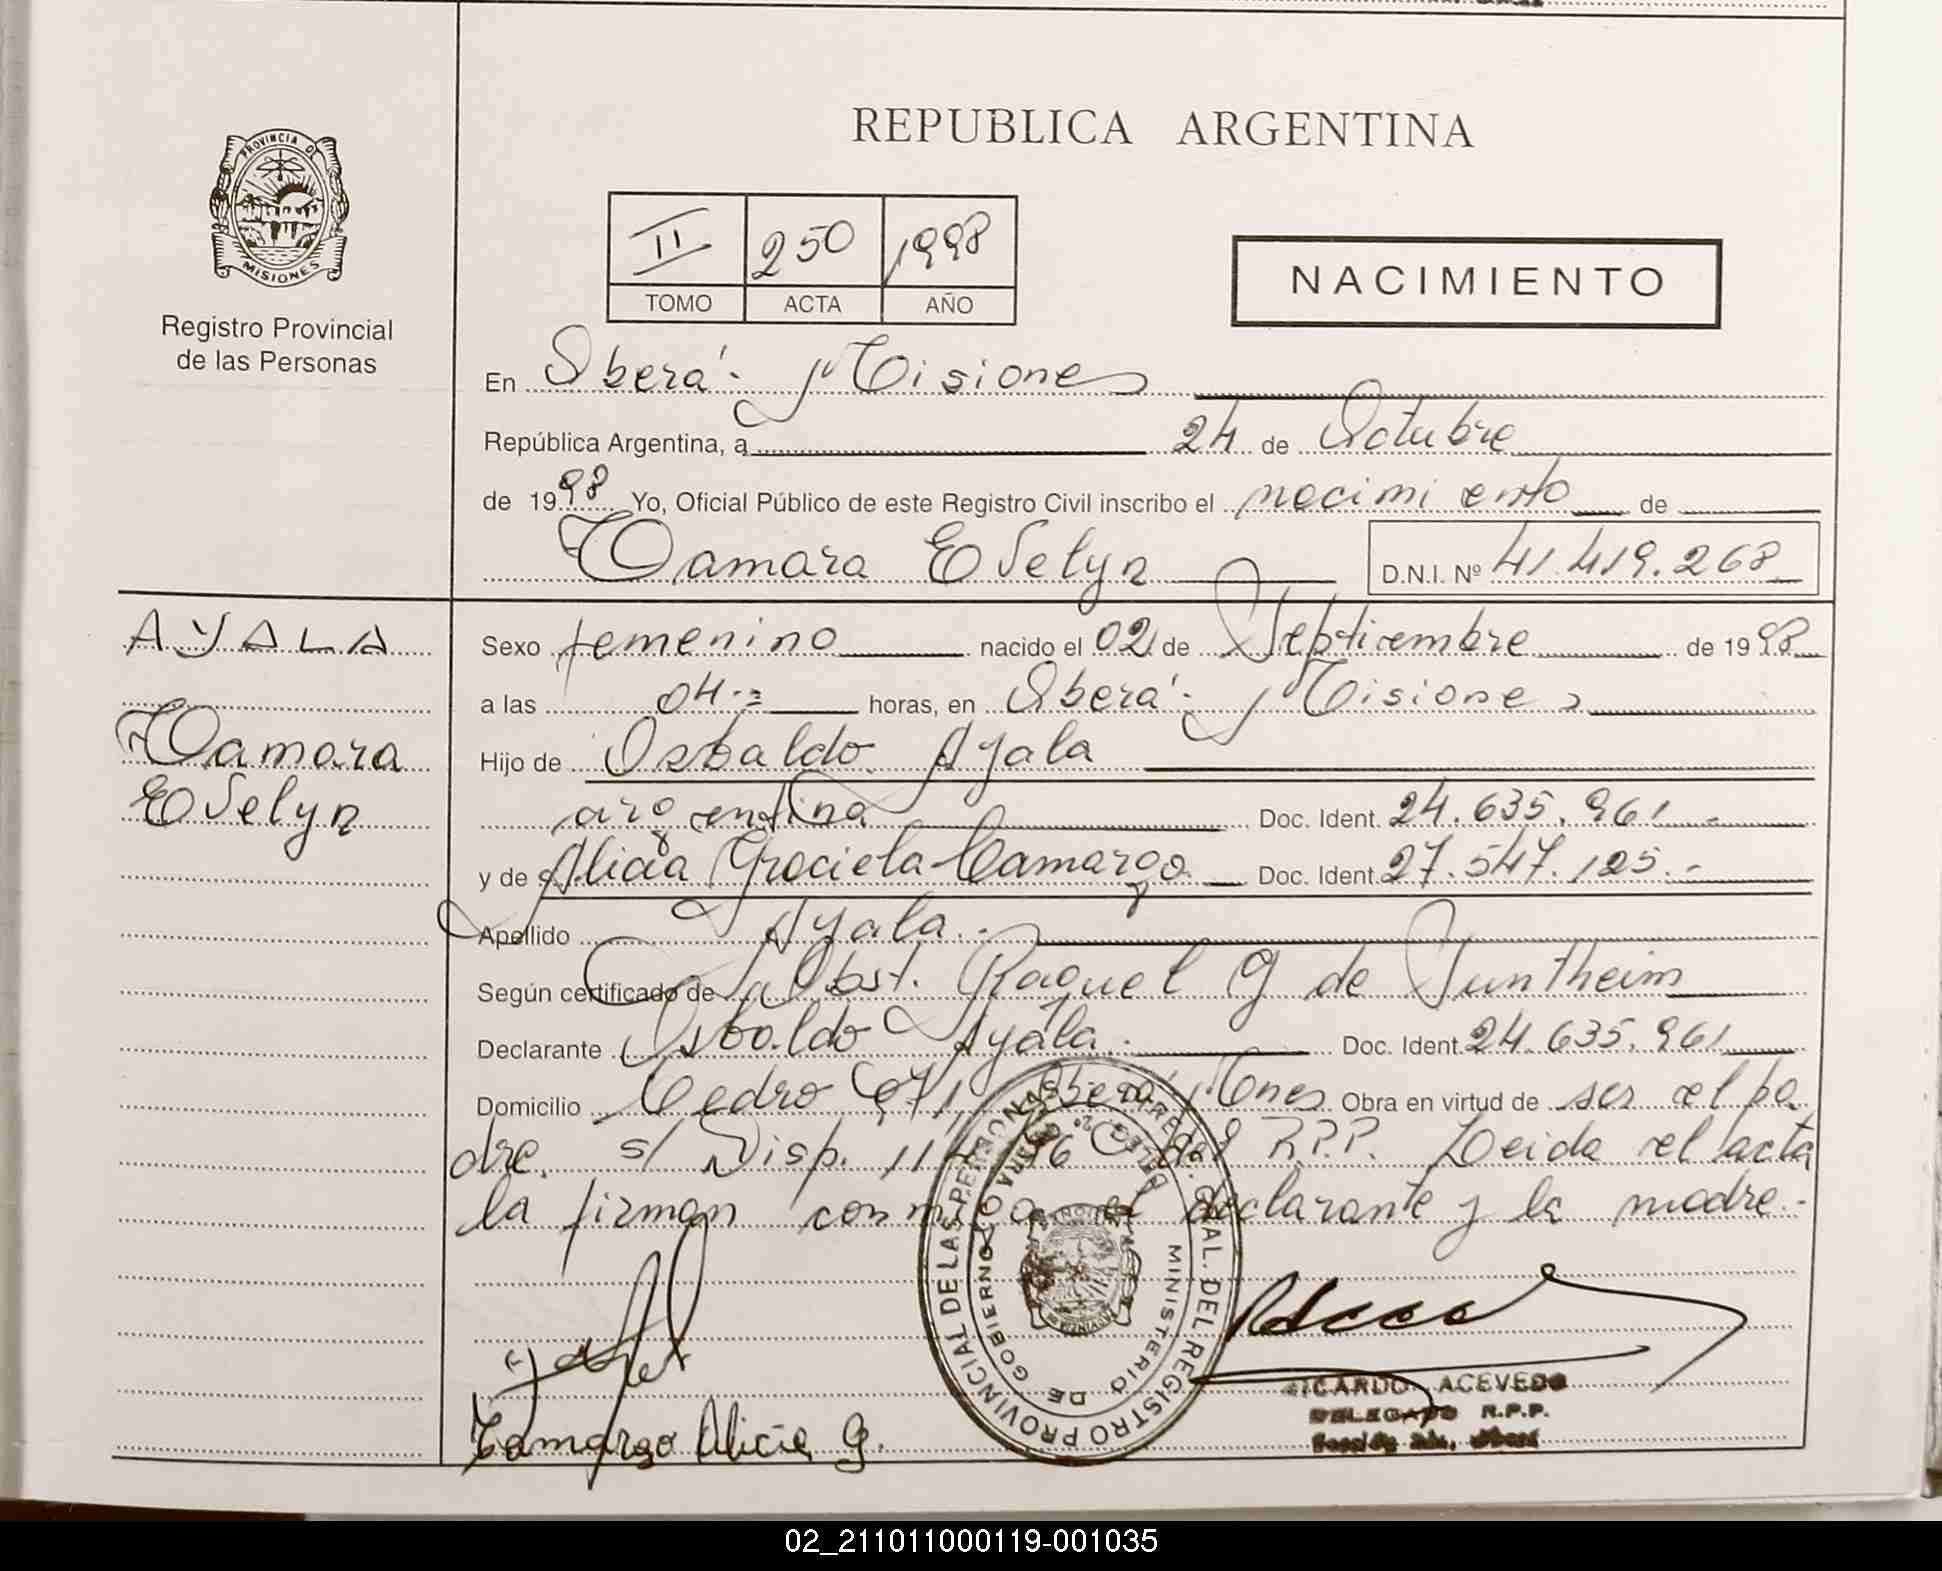 REPUBLICA ARGENTINA
PROVINCIA DE
MISIONES
Registro Provincial
de las Personas
II 250 1998
TOMO ACTA AÑO
NACIMIENTO
En Oberá - Misiones
República Argentina, a 24 de Octubre
de 1998 Yo, Oficial Público de este Registro Civil inscribo el nacimiento de
Tamara Evelyn D.N.I. Nº 41.419.268
AYALA
Tamara
Evelyn
Sexo femenino nacido el 02 de Septiembre de 1998
a las 04.= horas, en Oberá - Misiones
Hijo de Osbaldo Ayala
argentina Doc. Ident. 24.635.961.-
y de Alicia Graciela Camargo Doc. Ident. 27.547.125.-
Apellido Ayala.-
Según certificado de Obst. Raquel G de Suntheim
Declarante Osbaldo Ayala.- Doc. Ident. 24.635.961
Domicilio Cedro Oberá Mnes Obra en virtud de ser el pa
dre. s/ Disp. del R.P.P. Leida el acta
la firman conmigo el declarante y la madre.-
REGISTRO PROVINCIAL DE LAS PERSONAS
MINISTERIO DE GOBIERNO
Camargo Alicia G.
RICARDO ACEVEDO
DELEGADO R.P.P.
02_211011000119-001035